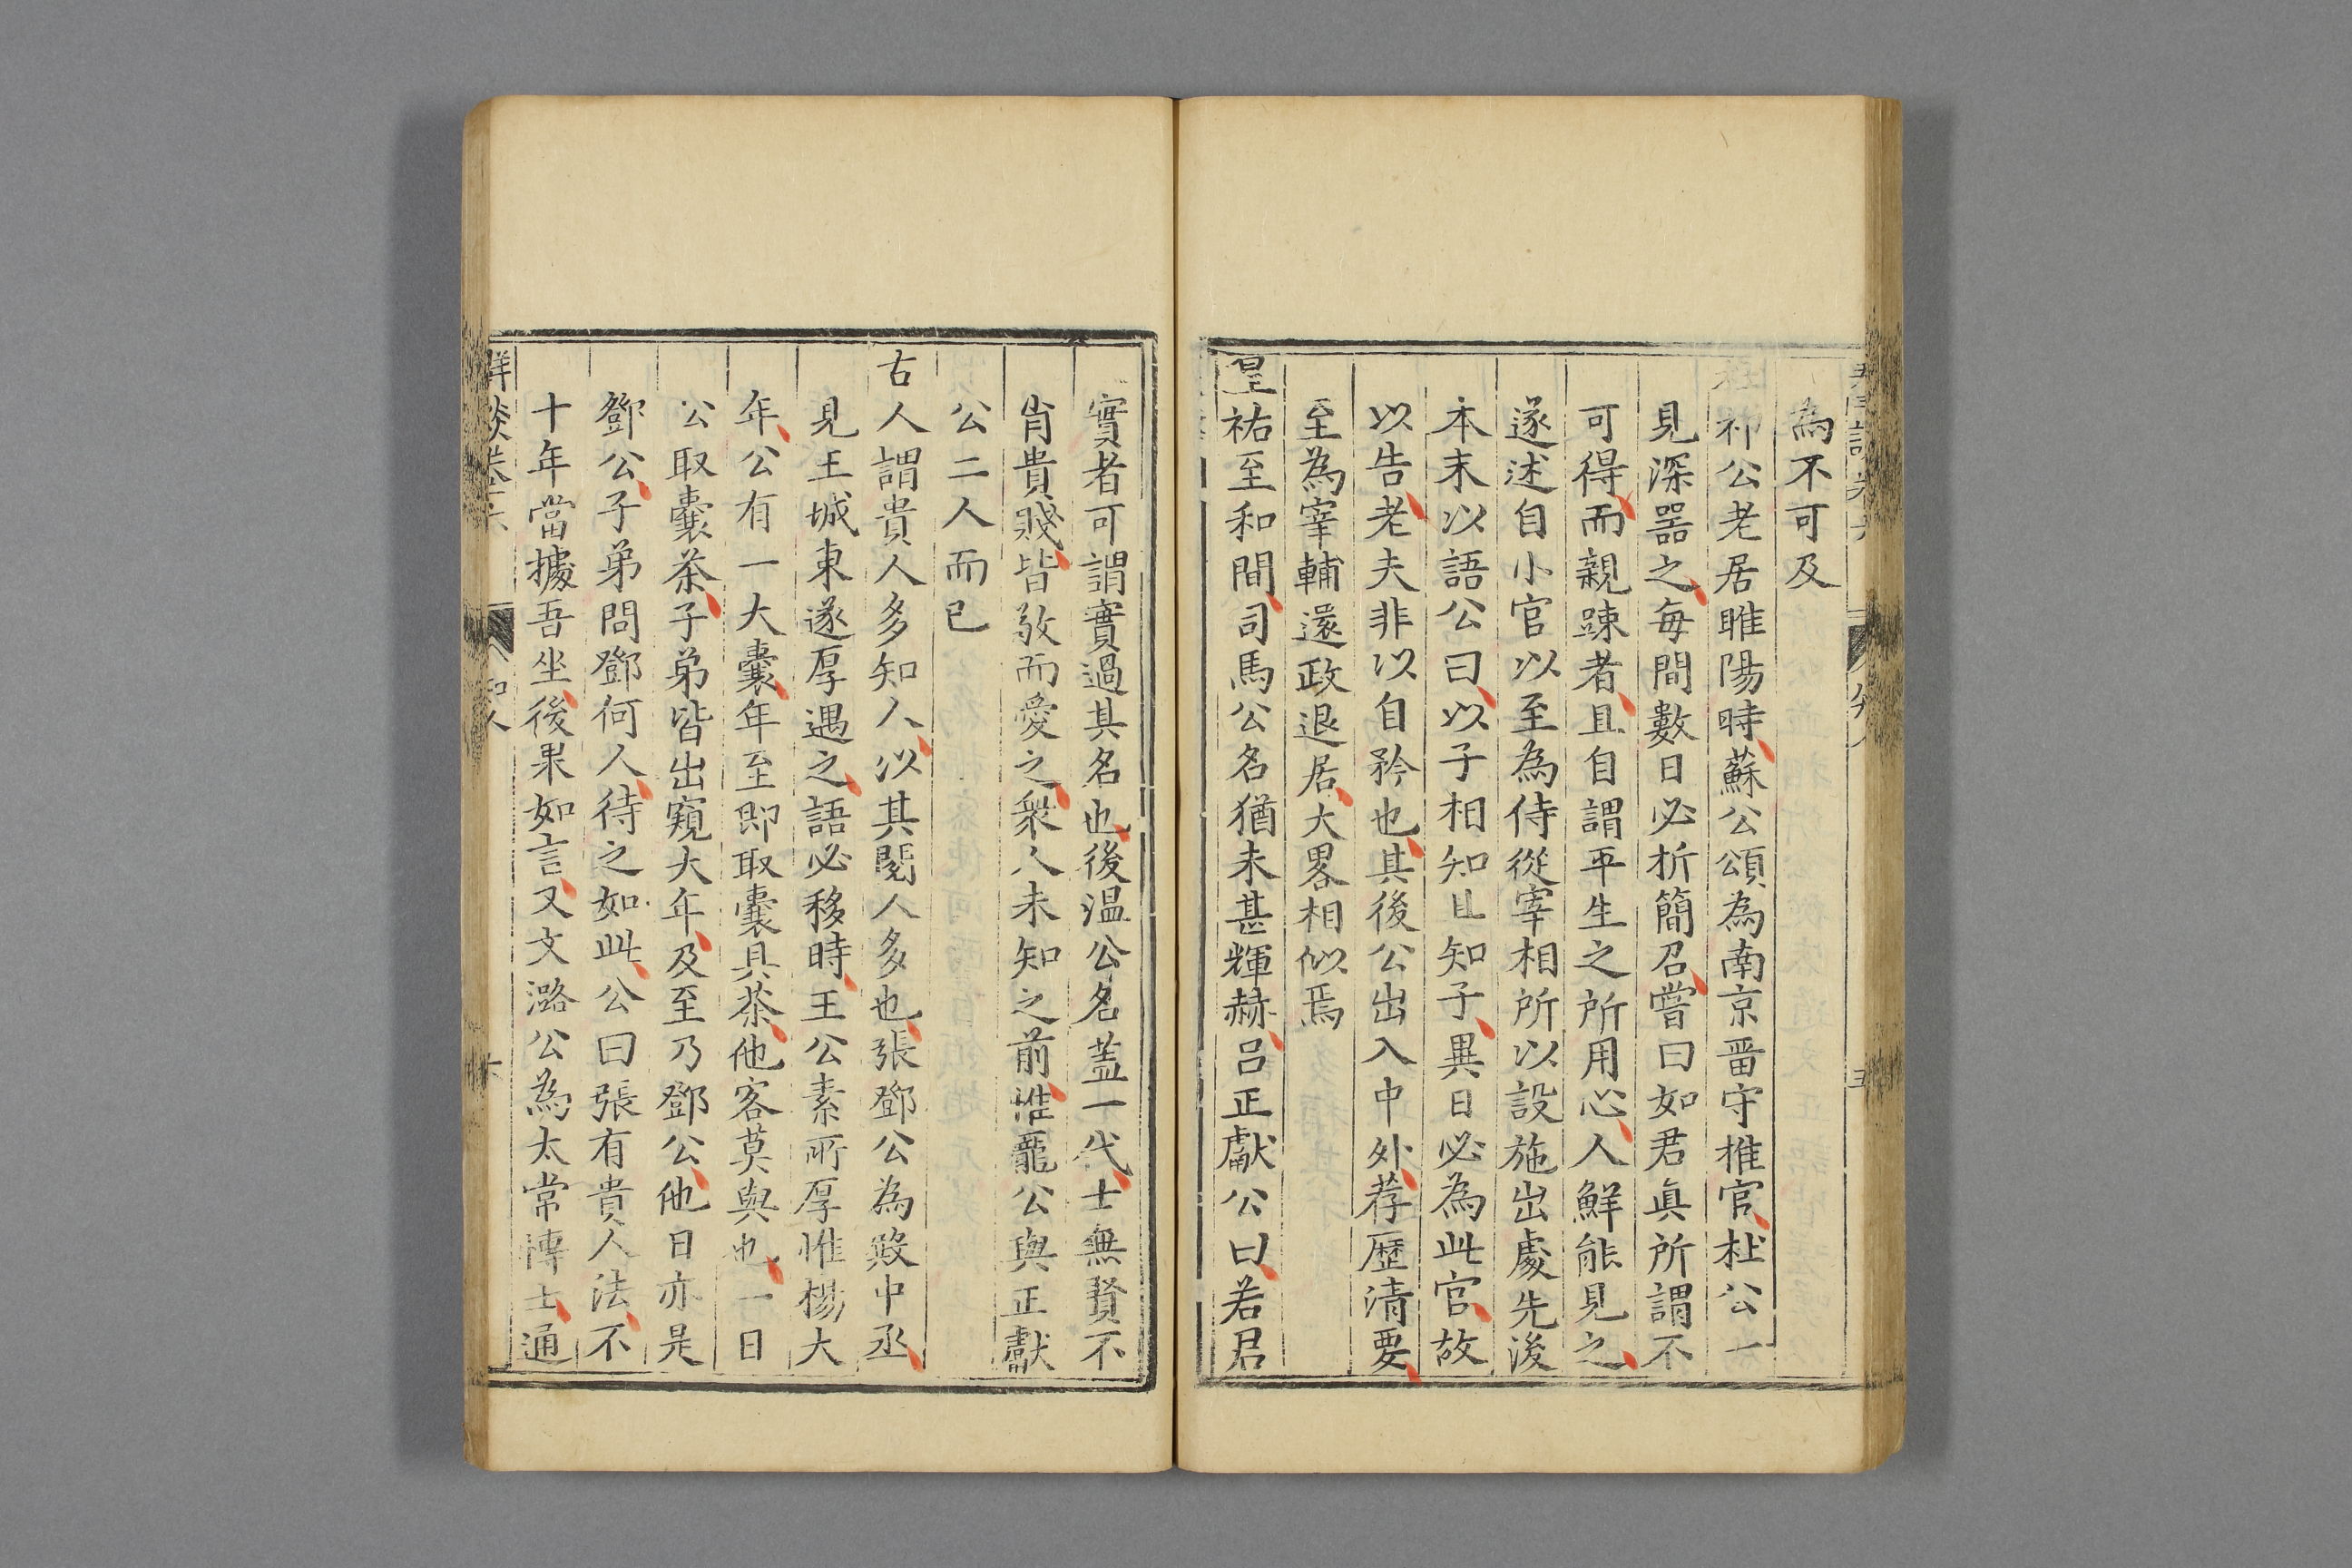 為不可及
祁公老居睢陽時蘇公頌為南京畱守推官杜公一
見深器之每間數日必折簡召嘗曰如君真所謂不
可得而親踈者且自謂平生之所用心人鮮能見之
遂述自小官以至為侍從宰相所以設施出處先後
本末以語公曰以子相知且知子異日必為此官故
以告老夫非以自矜也其後公出入中外荐歷清要
至為宰輔還政退居大畧相似焉
皇祐至和間司馬公名猶未甚輝赫呂正獻公曰若君
實者可謂實過其名也後温公名葢一代士無賢不
肖貴賤皆敬而愛之衆人未知之前惟龐公與正獻
公二人而已
古人謂貴人多知人以其閱人多也張鄧公為殿中丞
見王城東遂厚遇之語必移時王公素所厚惟楊大
年公有一大囊年至即取囊具茶他客莫與也一日
公取囊茶子弟皆出窺大年及至乃鄧公他日亦是
鄧公子弟問鄧何人待之如此公曰張有貴人法不
十年當據吾坐後果如言又文潞公為太常博士通
知人